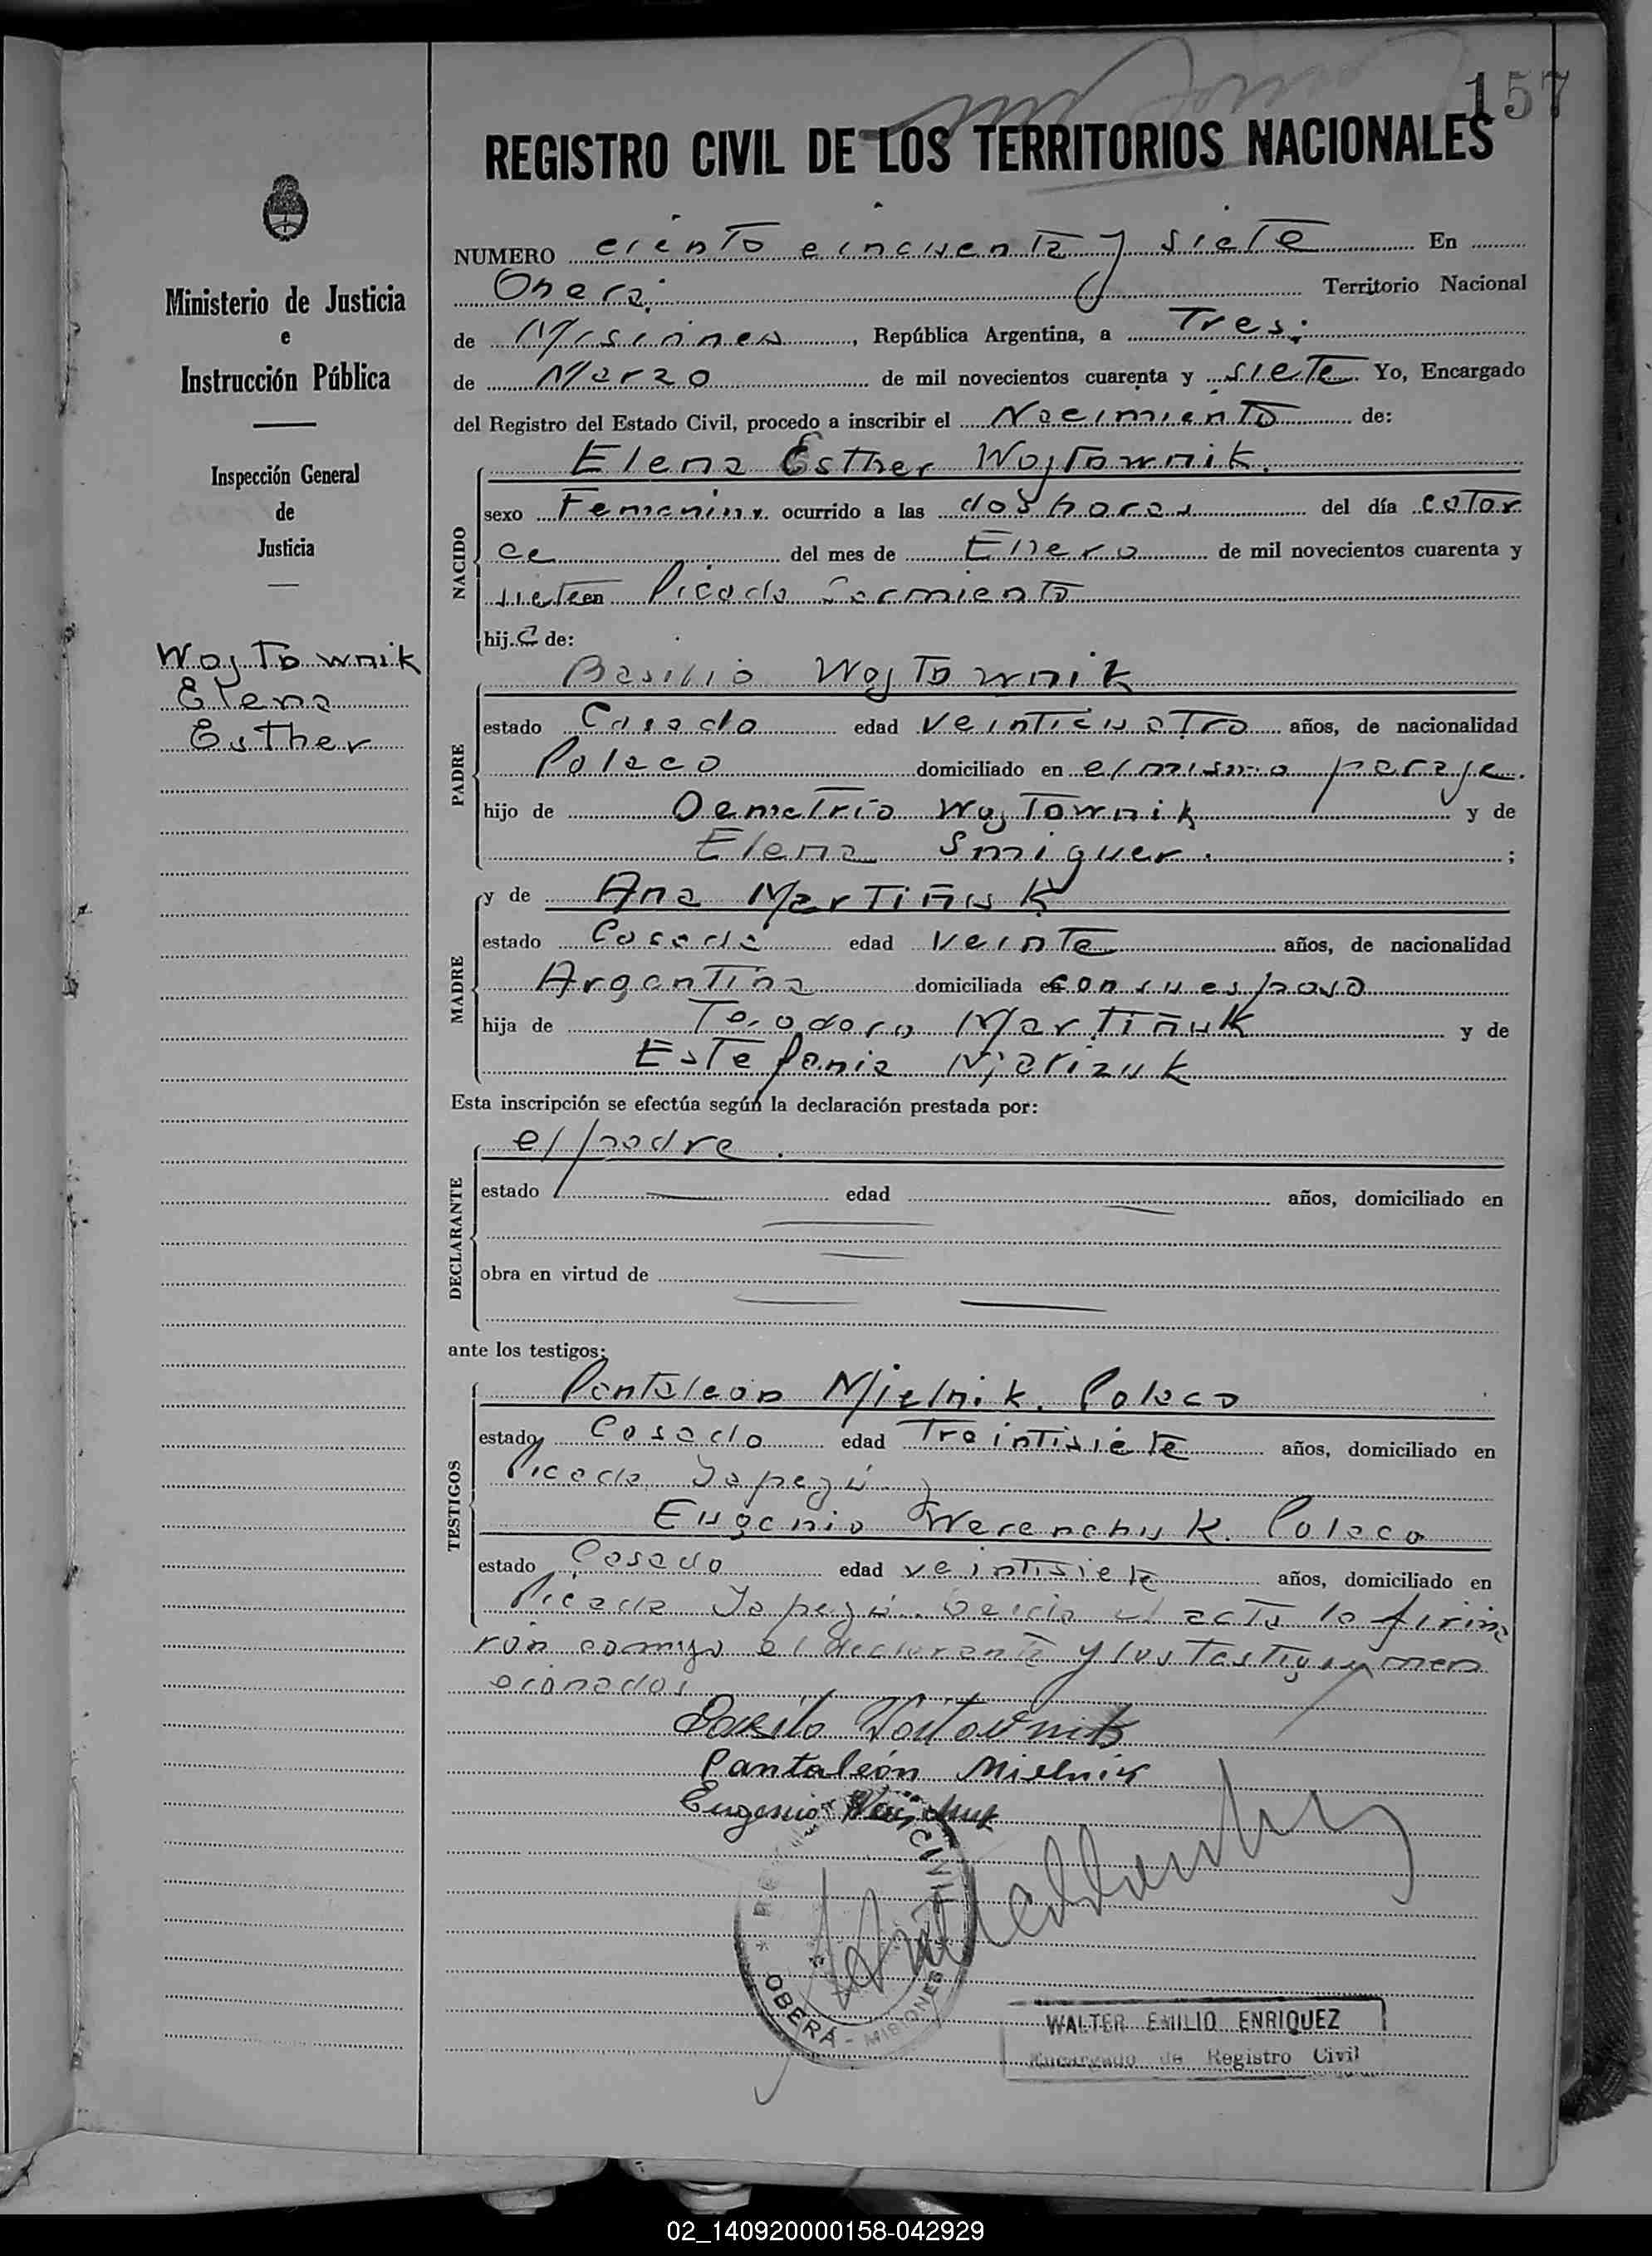 157
REGISTRO CIVIL DE LOS TERRITORIOS NACIONALES
Ministerio de Justicia
e
Instrucción Pública
Inspección General
de
Justicia
Wojtownik
Elena
Esther
NUMERO ciento cincuenta y siete En
Oberá. Territorio Nacional
de Misiones, República Argentina, a Tres.
de Marzo de mil novecientos cuarenta y siete Yo, Encargado
del Registro del Estado Civil, procedo a inscribir el Nacimiento de:
NACIDO
Elena Esther Wojtownik.
sexo Femenino ocurrido a las dos horas del día cator
ce del mes de Enero de mil novecientos cuarenta y
siete en Picada Sarmiento
hija de:
PADRE
Basilio Wojtownik
estado Casado edad veinticuatro años, de nacionalidad
Polaco domiciliado en el mismo paraje.
hijo de Demetrio Wojtownik y de
Elena Smiguer. ;
MADRE
y de Ana Martiñuk
estado Casada edad veinte años, de nacionalidad
Argentina domiciliada con su esposo
hija de Teodoro Martiñuk y de
Estefania
Esta inscripción se efectúa según la declaración prestada por:
DECLARANTE
el padre.
estado edad años, domiciliado en
obra en virtud de
ante los testigos:
TESTIGOS
Pantaleón Mielnik. Polaco
estado Casado edad Treintisiete años, domiciliado en
Picada Yapeyú. y
Eugenio Werenchuk. Polaco
estado Casado edad veintisiete años, domiciliado en
Picada Yapeyú. el acta la firma
ron conmigo el declarante y los testigos men
cionados
Wojtownik
Pantaleón Mielnik
Eugenio
CIVIL
OBERÁ - MISIONES
WALTER EMILIO ENRIQUEZ
Encargado de Registro Civil
02_140920000158-042929